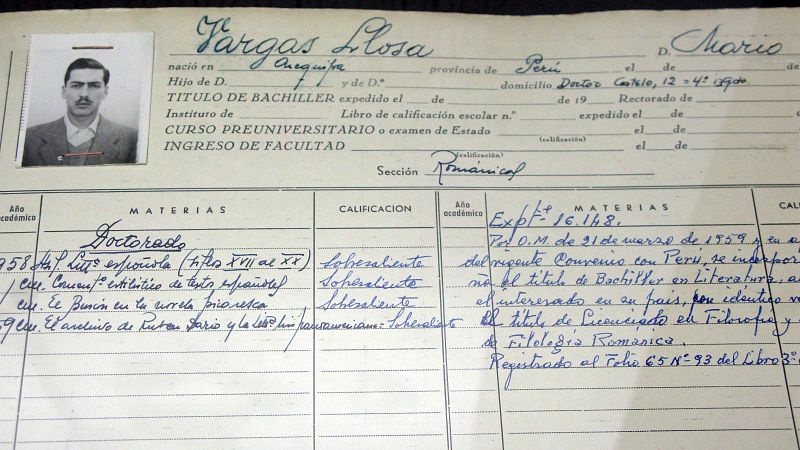 Vargas Llosa D. Mario
nació en Arequipa provincia de Perú el de de
Hijo de D. y de D.ª domicilio Doctor Castelo, 12 = 4º
TITULO DE BACHILLER expedido el de de 19 Rectorado de
Instituto de Libro de calificación escolar n.º expedido el de
CURSO PREUNIVERSITARIO o examen de Estado (calificación) el de
INGRESO DE FACULTAD (calificación) el de
Sección Románicas
Año académico MATERIAS CALIFICACION
Doctorado
1958 española (siglos XVII al XX) Sobresaliente
estilístico de textos españoles Sobresaliente
El Buscón en la novela picaresca Sobresaliente
59 El archivo de Rubén Darío y la hispanoamericana = Sobresaliente
Año académico MATERIAS CAL
Expte 16.148.
Por O.M. de 21 de marzo de 1959 y en
del vigente Convenio con Perú, se incorpor
el título de Bachiller en Literatura,
el interesado en su país, con idéntico
el título de Licenciado en Filosofía y
de Filología Románica.
Registrado al Folio 65 Nº 93 del Libro 3º